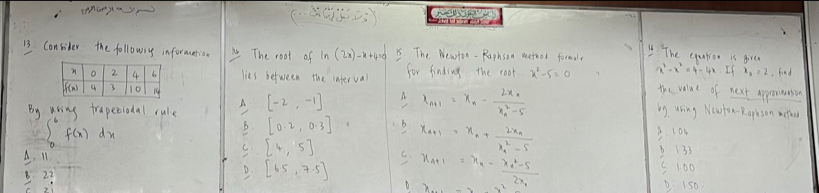 13 Consider the following information
x 0 2 4 6
f(x) 4 3 10 14
By using trapezoidal rule
∫₀⁶ f(x) dx
A. 11
B. 22
C. 21
14 The root of ln (2x) - x + 4 = 0
lies between the interval
A [-2, -1]
B. [0.2, 0.3]
C. [4, 5]
D. [6.5, 7.5]
15 The Newton-Raphson method formula
for finding the root x² - 5 = 0
A xₙ₊₁ = xₙ - 2xₙ / (xₙ² - 5)
B xₙ₊₁ = xₙ + 2xₙ / (xₙ² - 5)
C. xₙ₊₁ = xₙ - (xₙ² - 5) / 2xₙ
D
16 The equation is given
If x₀ = 2, find
the value of next approximation
by using Newton-Raphson method
A 1.04
B 1.33
C 1.00
D 1.50